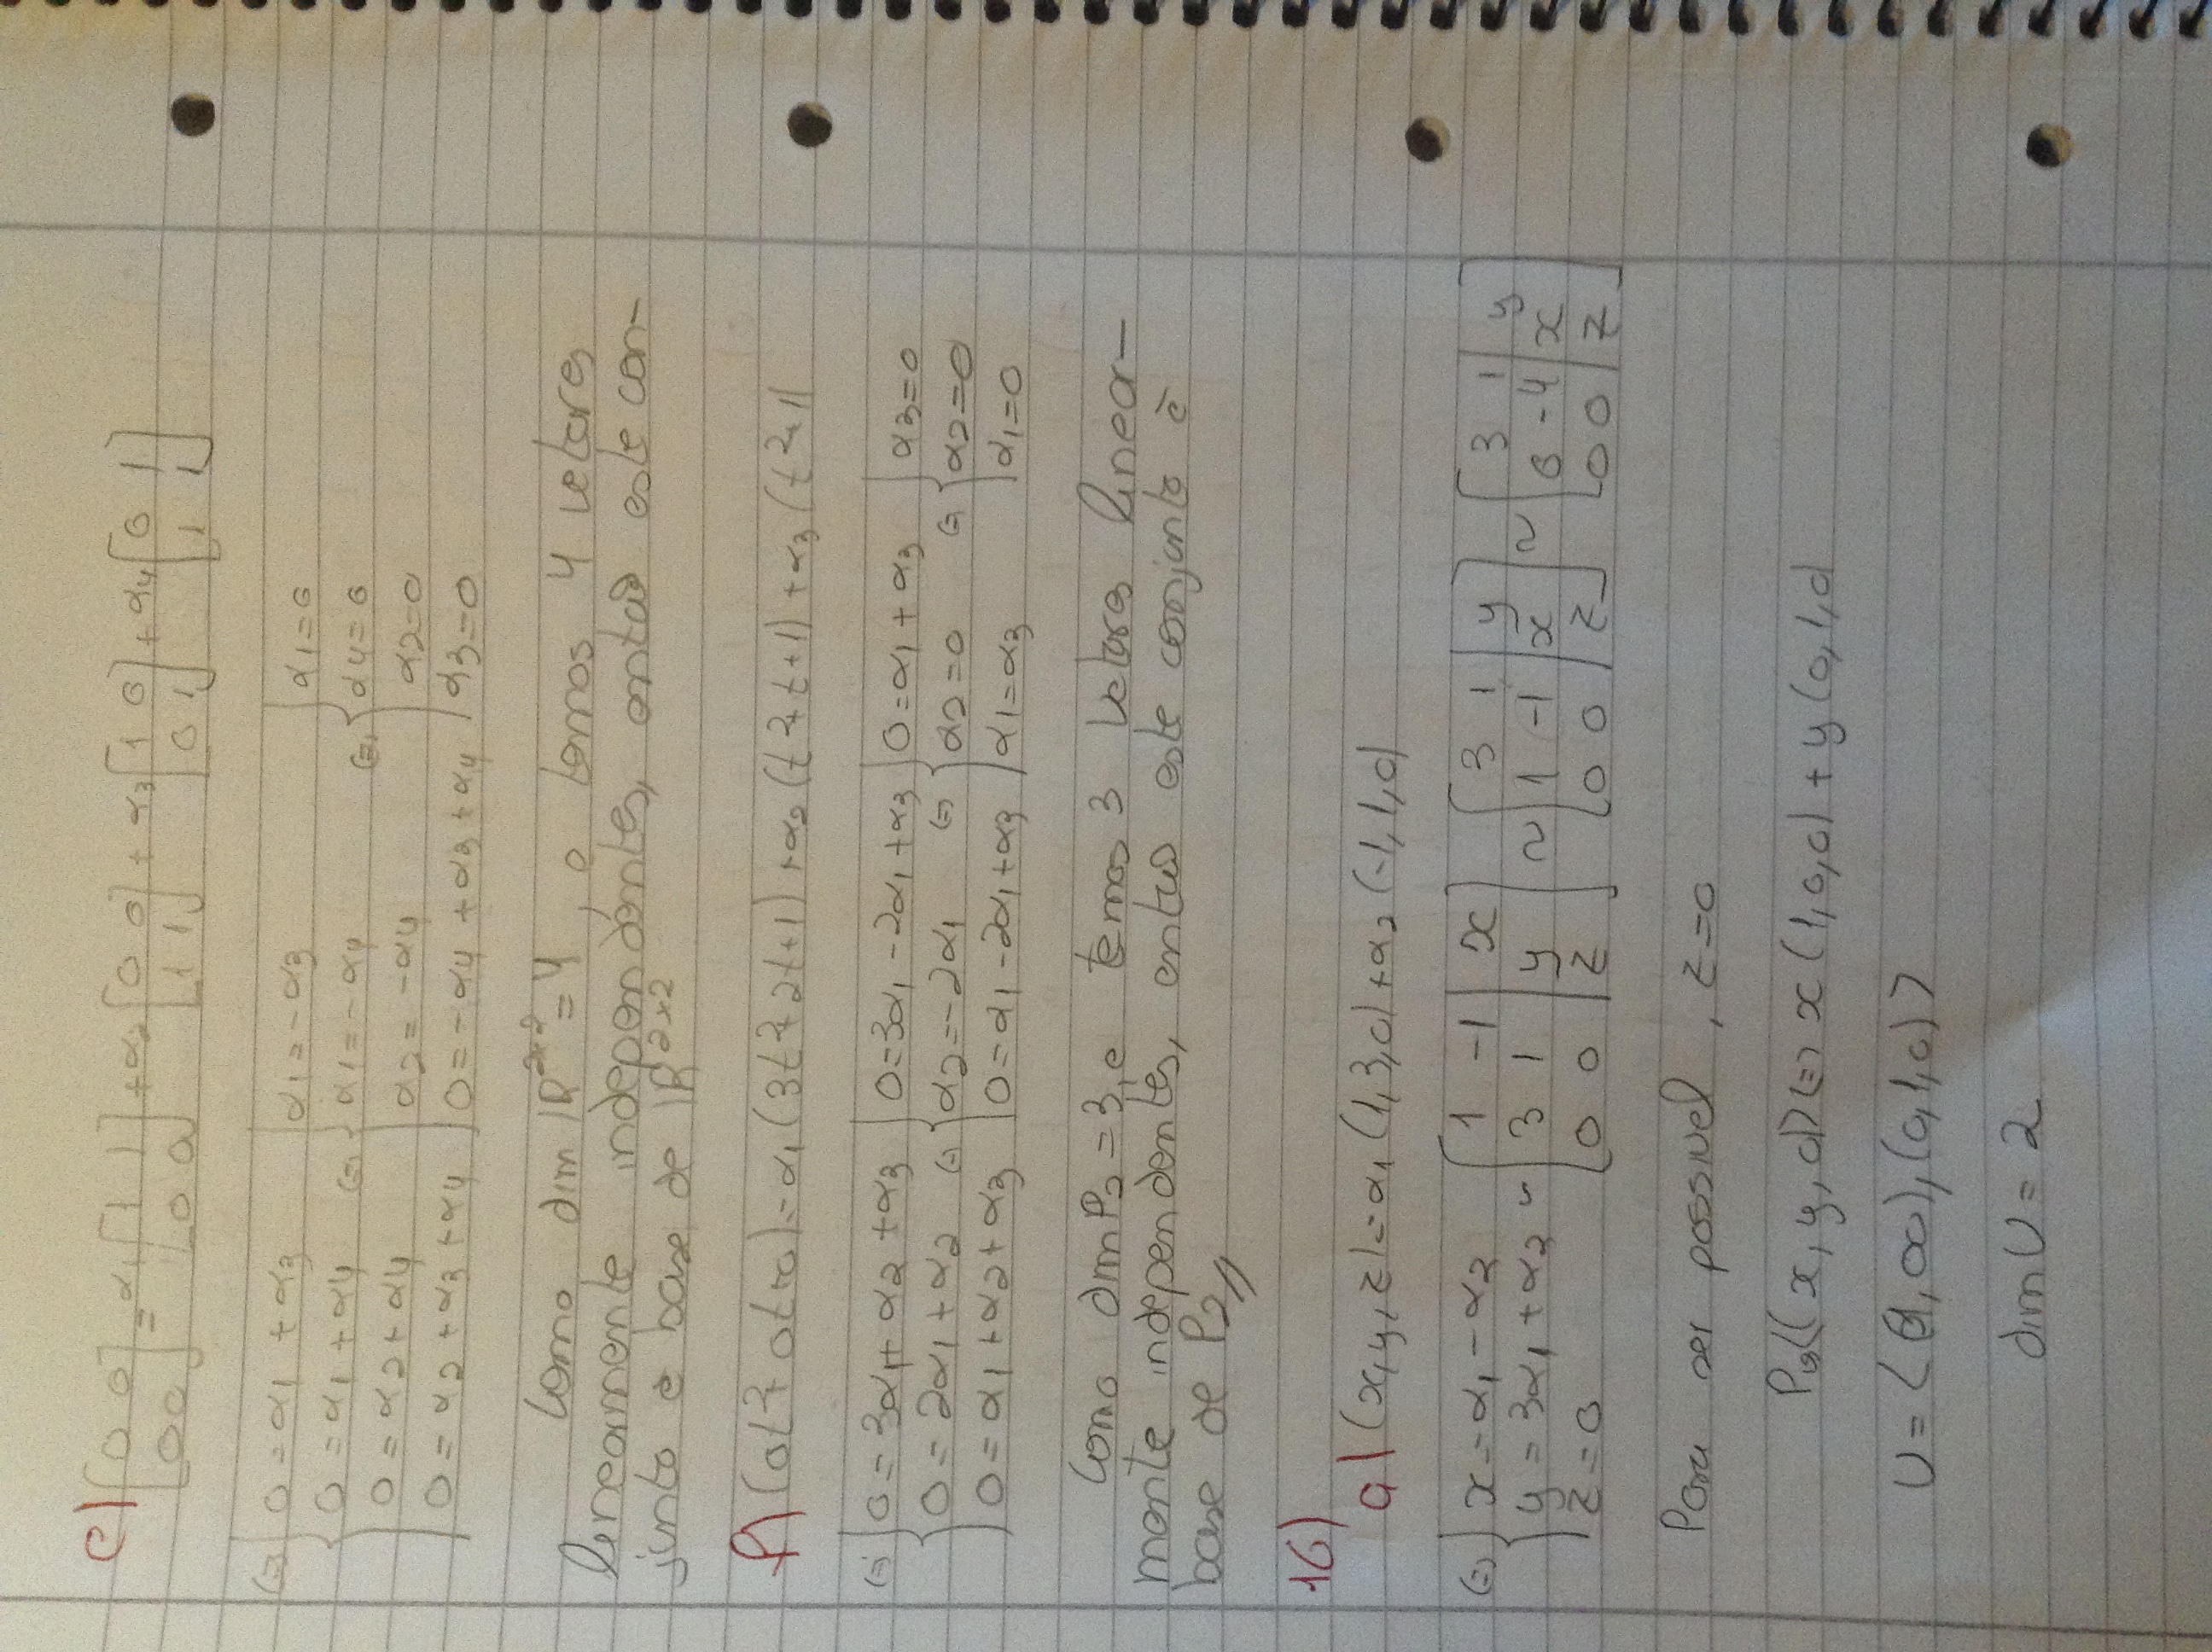 e) [0 0; 0 0] = α1 [1 1; 0 0] + α2 [0 0; 1 1] + α3 [1 0; 0 1] + α4 [0 1; 1 1]
(=) { 0 = α1 + α3 { α1 = -α3 { α1 = 0
0 = α1 + α4 (=) α1 = -α4 (=) α4 = 0
0 = α2 + α4 α2 = -α4 α2 = 0
0 = α2 + α3 + α4 0 = -α4 + α3 + α4 α3 = 0
Como dim IR^2x2 = 4, e temos 4 vetores
linearmente independentes, então este con-
junto é base de IR^2x2
f) (0t²+ 0t+0) = α1 (3t²+2t+1) + α2 (t²+t+1) + α3 (t²+1)
(=) { 0 = 3α1 + α2 + α3 { 0=3α1 -2α1 + α3 { 0=α1 + α3 { α3=0
0 = 2α1 + α2 (=) α2=-2α1 (=) α2=0 (=) α2=0
0 = α1 + α2 + α3 0=α1 -2α1 + α3 α1=α3 α1=0
Como dim P2 = 3, e temos 3 vetores linear-
mente independentes, então este conjunto é
base de P2//
16)
a) (x,y,z) = α1 (1,3,0) + α2 (-1,1,0)
(=) { x = α1 - α2 [1 -1 | x] [3 1 | y] [3 1 | y]
y = 3α1 + α2 ~ [3 1 | y] ~ [1 -1 | x] ~ [0 -4 | x]
z = 0 [0 0 | z] [0 0 | z] [0 0 | z]
Para ser possivel, z=0
(x, y, 0) (=) x (1,0,0) + y (0,1,0)
U = <(1,0,0), (0,1,0)>
dim U = 2